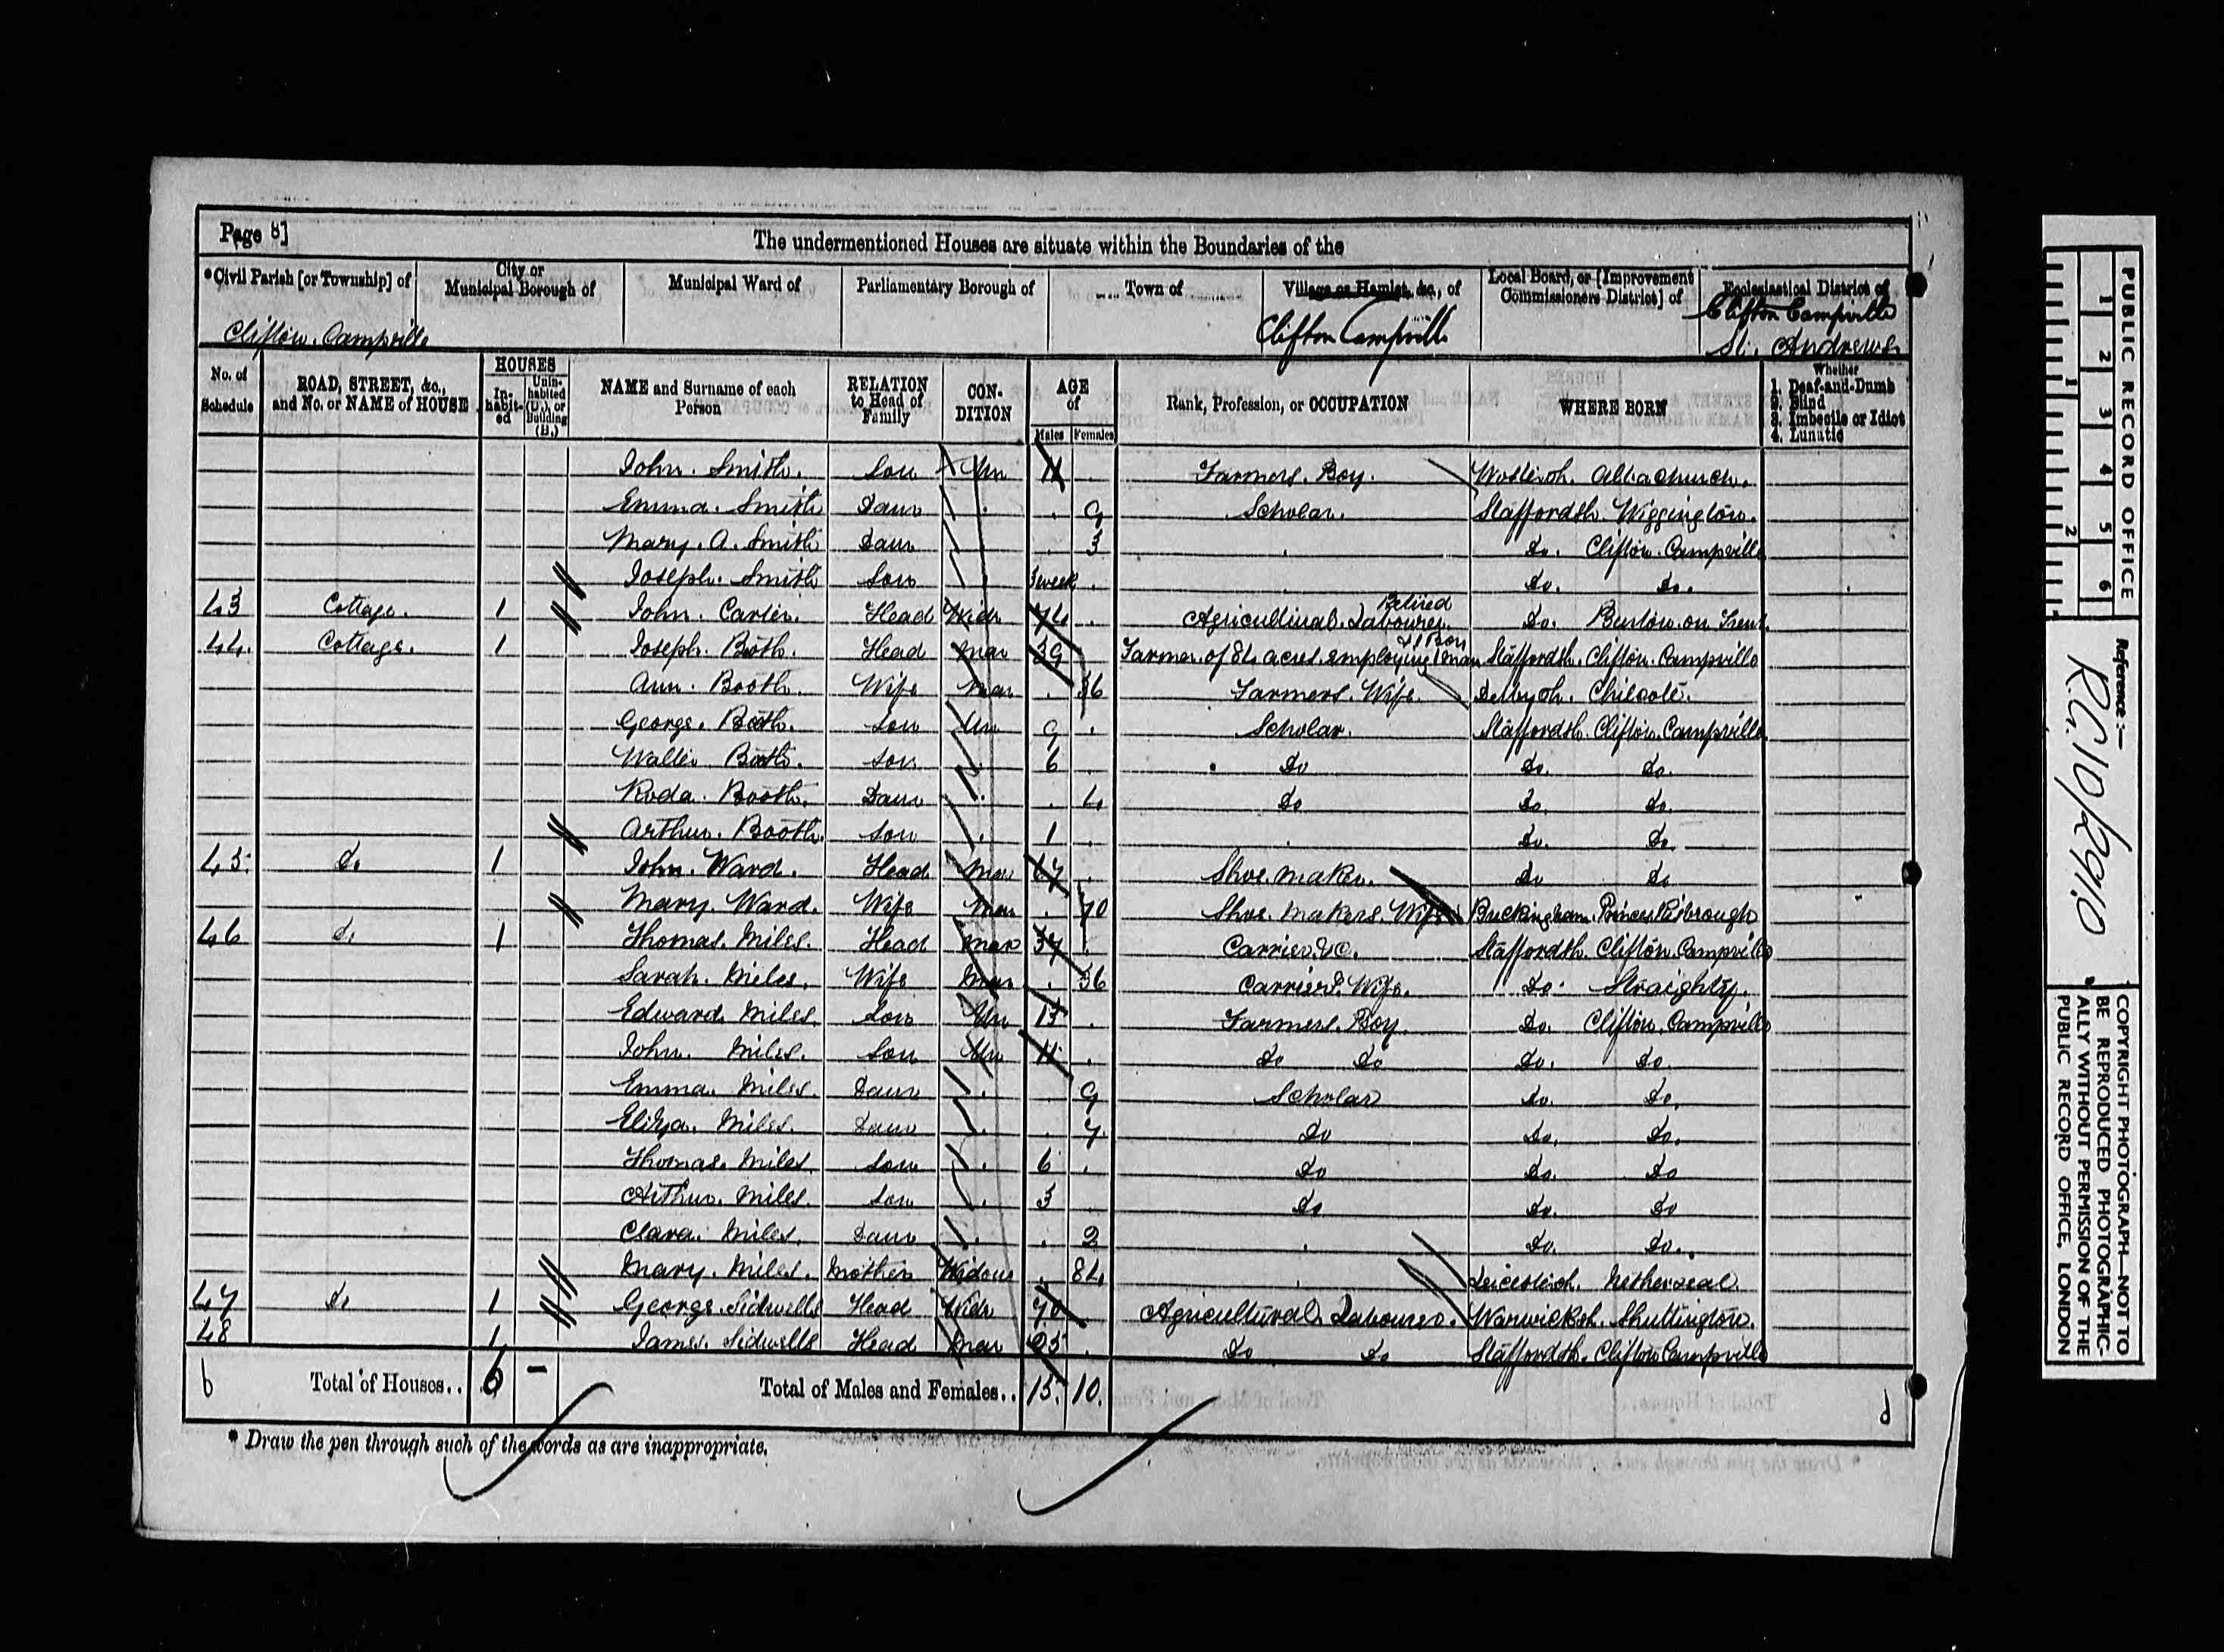 Page 8]
The undermentioned Houses are situate within the Boundaries of the
*Civil Parish [or Township] of City or Municipal Borough of Municipal Ward of Parliamentary Borough of Town of Village or Hamlet, &c., of Local Board, or [Improvement Commissioners District] of Ecclesiastical District of
Clifton Campville Clifton Campville Clifton Campville St. Andrews
No. of Schedule ROAD, STREET, &c., and No. or NAME of HOUSE HOUSES In-habit-ed Unin-habited (U.), or Building (B.) NAME and Surname of each Person RELATION to Head of Family CON-DITION AGE of Males Females Rank, Profession, or OCCUPATION WHERE BORN Whether 1. Deaf-and-Dumb 2. Blind 3. Imbecile or Idiot 4. Lunatic
John. Smith. Son Un 11 Farmers. Boy.
Emma. Smith Daur 9 Scholar. Staffordsh. Wiggington.
Mary. A. Smith Daur 3 Do. Clifton. Campville
Joseph. Smith Son 3 week Do. Do.
43 Cottage. 1 John. Carter. Head Widr 74 Agricultural. Labourer. Retired Do. Burton on Trent
44. Cottage. 1 Joseph. Booth. Head Mar 39 Farmer. of 84 acres. employing 1 man & 1 Boy Staffordsh. Clifton. Campville
Ann. Booth. Wife Mar 36 Farmers. Wife. Derbysh. Chilcote.
George. Booth. Son Un 9 Scholar. Staffordsh. Clifton. Campville
Walter Booth. Son 6 Do Do. Do.
Roda. Booth. Daur 4 Do Do. Do.
Arthur. Booth. Son 1 Do. Do.
45. Do 1 John. Ward. Head Mar 67 Shoe. Maker. Do Do
Mary. Ward. Wife Mar 70 Shoe. Makers. Wife Buckingham.
46 Do 1 Thomas. Miles. Head Mar 37 Carrier. &c. Staffordsh. Clifton. Campville
Sarah. Miles. Wife Mar 36 Carriers. Wife. Do.
Edward. Miles. Son Un 13 Farmers. Boy. Do. Clifton. Campville
John. Miles. Son Un 11 Do Do Do. Do.
Emma. Miles. Daur 9 Scholar Do. Do.
Eliza. Miles. Daur 7 Do Do. Do.
Thomas. Miles. Son 6 Do Do. Do
Arthur. Miles. Son 3 Do Do. Do
Clara. Miles. Daur 2 Do. Do.
Mary. Miles. Mother Widow 84 Leicestersh. Netherseal.
47 Do 1 George. Sidwells Head Widr 70 Agricultural. Labourer. Warwicksh. Shuttington.
48 1 James. Sidwells Head Mar Do Do Staffordsh. Clifton Campville
6 Total of Houses.. 6 – Total of Males and Females.. 15. 10.
* Draw the pen through such of the words as are inappropriate.
PUBLIC RECORD OFFICE
1 2 3 4 5 6
1 2
Reference :—
R.G. 10/2910
COPYRIGHT PHOTOGRAPH—NOT TO
BE REPRODUCED PHOTOGRAPHIC-
ALLY WITHOUT PERMISSION OF THE
PUBLIC RECORD OFFICE, LONDON